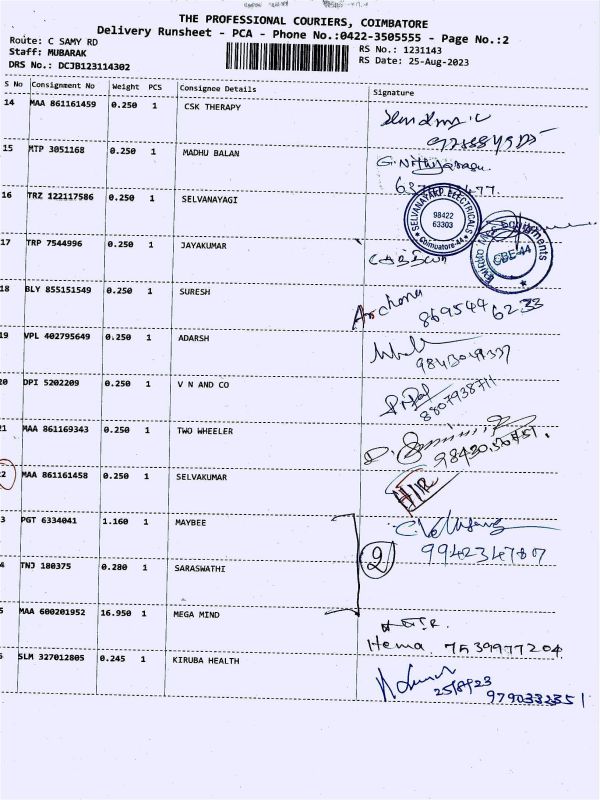 THE PROFESSIONAL COURIERS, COIMBATORE
Delivery Runsheet - PCA - Phone No.:0422-3505555 - Page No.:2
Route: C SAMY RD
Staff: MUBARAK
DRS No.: DCJB123114302
RS No.: 1231143
RS Date: 25-Aug-2023
S No Consignment No Weight PCS Consignee Details Signature
14 MAA 861161459 0.250 1 CSK THERAPY
15 MTP 3051168 0.250 1 MADHU BALAN
16 TRZ 122117586 0.250 1 SELVANAYAGI
SELVANAYAKI ELECTRICALS
98422
63303
Coimbatore-44
17 TRP 7544996 0.250 1 JAYAKUMAR
CBE-44
18 BLY 855151549 0.250 1 SURESH
Archana
869544 6233
19 VPL 402795649 0.250 1 ADARSH
20 DPI 5202209 0.250 1 V N AND CO
8807938711
21 MAA 861169343 0.250 1 TWO WHEELER
22 MAA 861161458 0.250 1 SELVAKUMAR
3 PGT 6334041 1.160 1 MAYBEE
9942347807
4 TNJ 180375 0.280 1 SARASWATHI
2
5 MAA 600201952 16.950 1 MEGA MIND
Hema 7539977204
SLM 327012805 0.245 1 KIRUBA HEALTH
25/8/23
9790333351